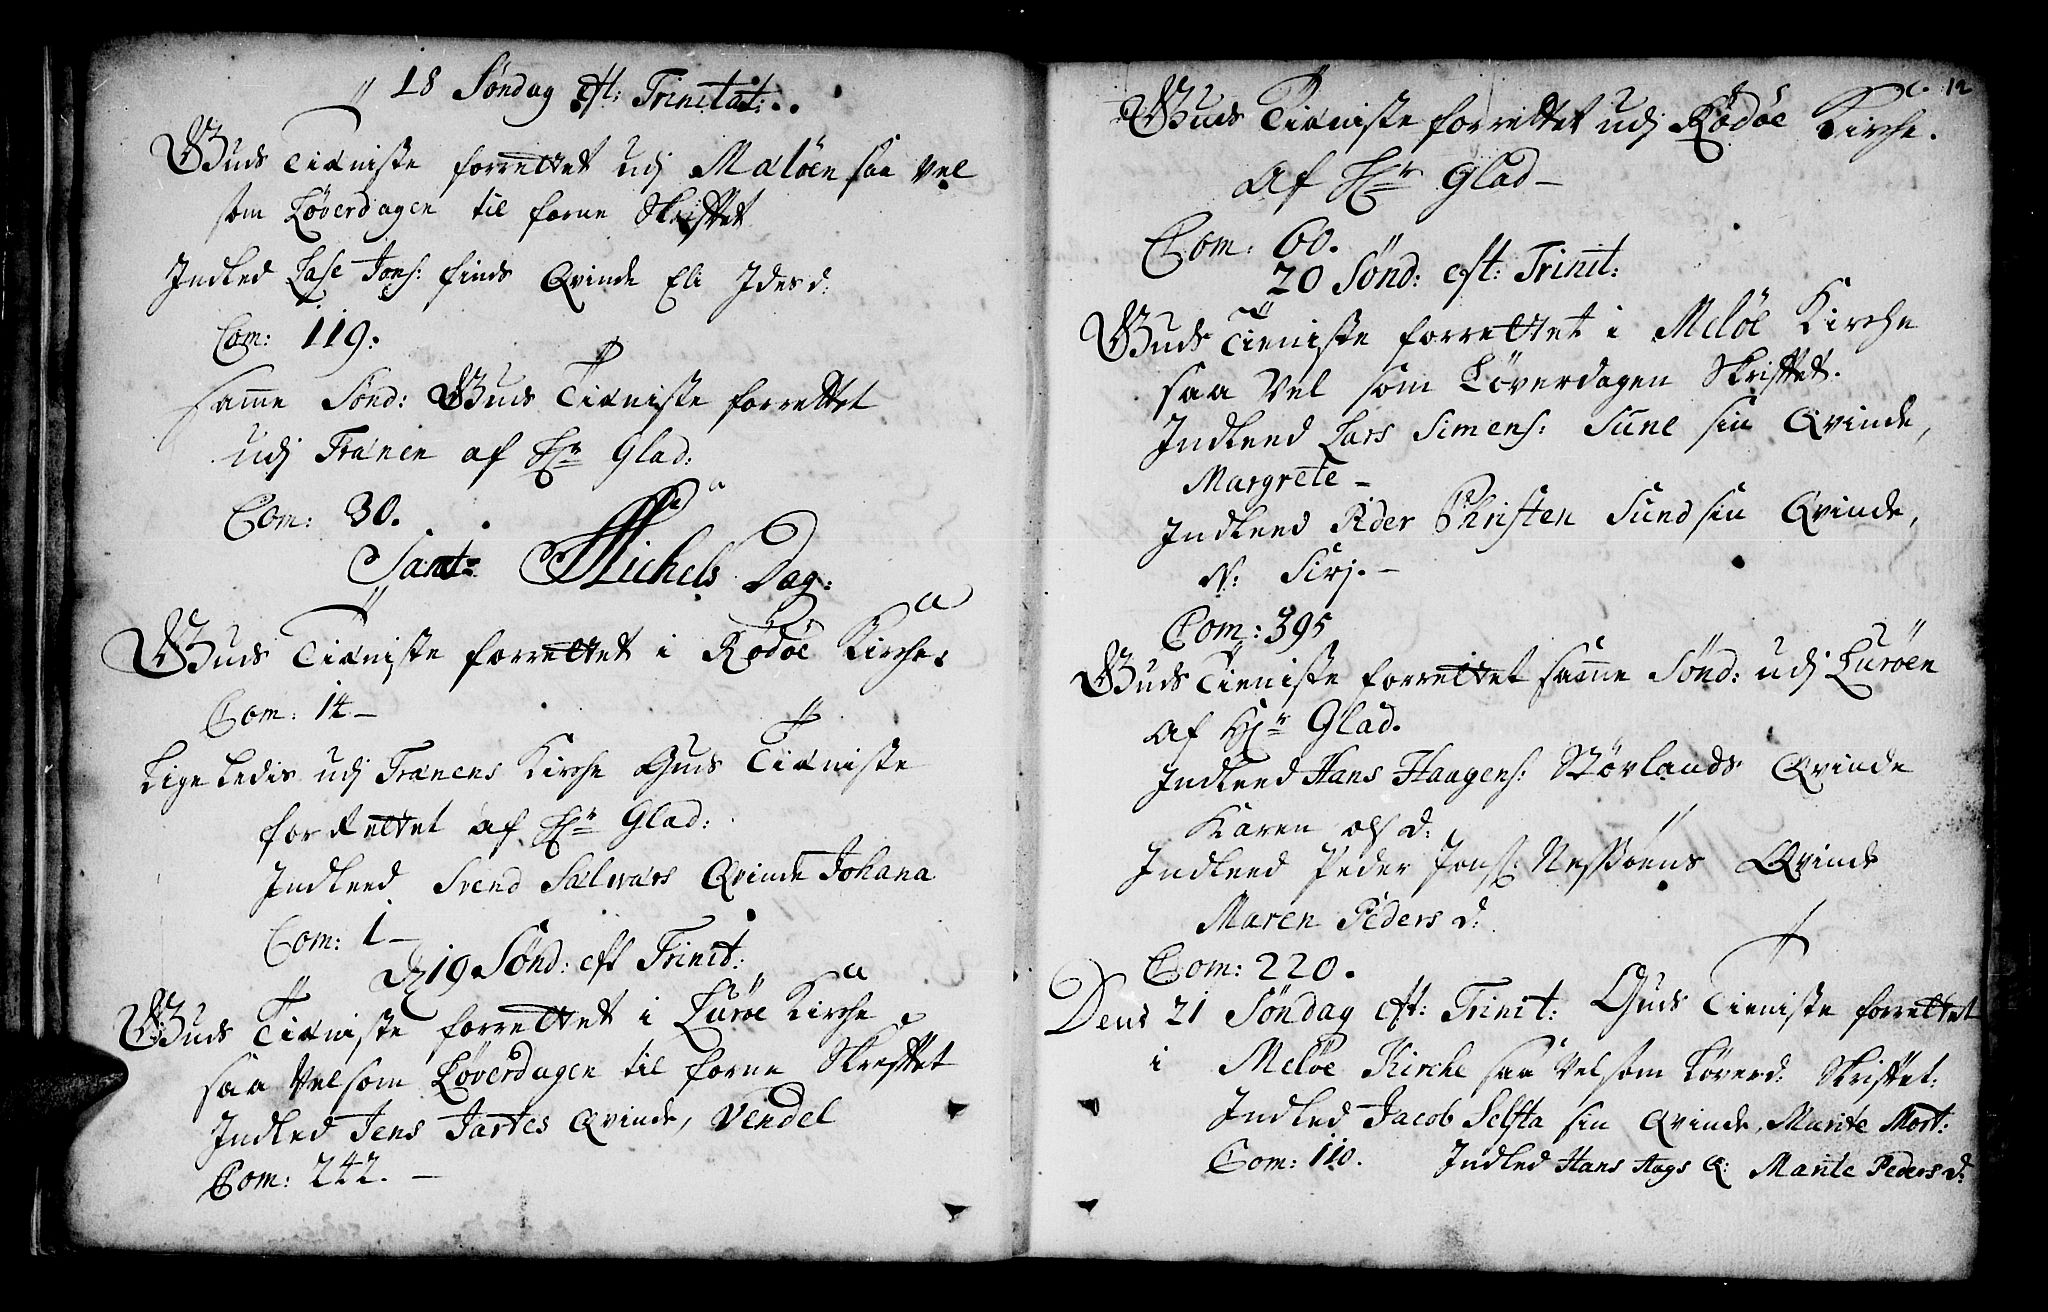 18 Søndag eft: Trinitat:
Guds Tieniste forrettet udj Meløen saa vel
som Løverdagen til forne Skrifftet
Indled Lase Jons: finds Qvinde Eli Idesd:
Com: 119:
samme Sønd: Guds Tieniste forrettet
udj Trænen af Hr Glad:
Com: 30.
Sanct Michels Dag:
Guds Tieniste forrettet i Rødøe Kirche:
Com: 14 –
Lige Ledis udj Trænens Kirche Guds Tieniste
forrettet af Hr Glad:
Indleed Svend Selvers Qvinde Johana
Com: 1 –
D 19 Sønd: eft Trinit:
Guds Tieniste forrettet i Lurøe Kirche
saa Vel som Løverdagen til forne Skrefftet
Indled Jens Jartes Qvinde, Vendel
Com: 242. –
12
Guds Tieniste forrettet udj Rødøe Kirche.
Af Hr Glad –
Com: 60.
20 Sønd: eft: Trinit:
Guds Tieniste forrettet i Meløe Kirche
saa Vel som Løverdagen Skrifftet.
Indleed Lars Simens: Sune sin Qvinde,
Margrete –
Indleed Peder Christen Sund sin Qvinde,
N: Sirj. –
Com: 395
Guds Tieniste forrettet samme Sønd: udj Lurøen
af Hr Glad.
Indleed Hans Haagens: Størlands Qvinde
Karen Ols d:
Indleed Peder Jons: Nessøens Qvinde
Maren Peders d:
Com: 220.
Dend 21 Søndag eft: Trinit: Guds Tieniste forrettet
i Meløe Kirche saa Vel som Løverd: Skrifftet:
Indled Jacob Selsta sin Qvinde, Marite Mort:
Com: 110. Indled Hans Aags Q: Marite Peders d: